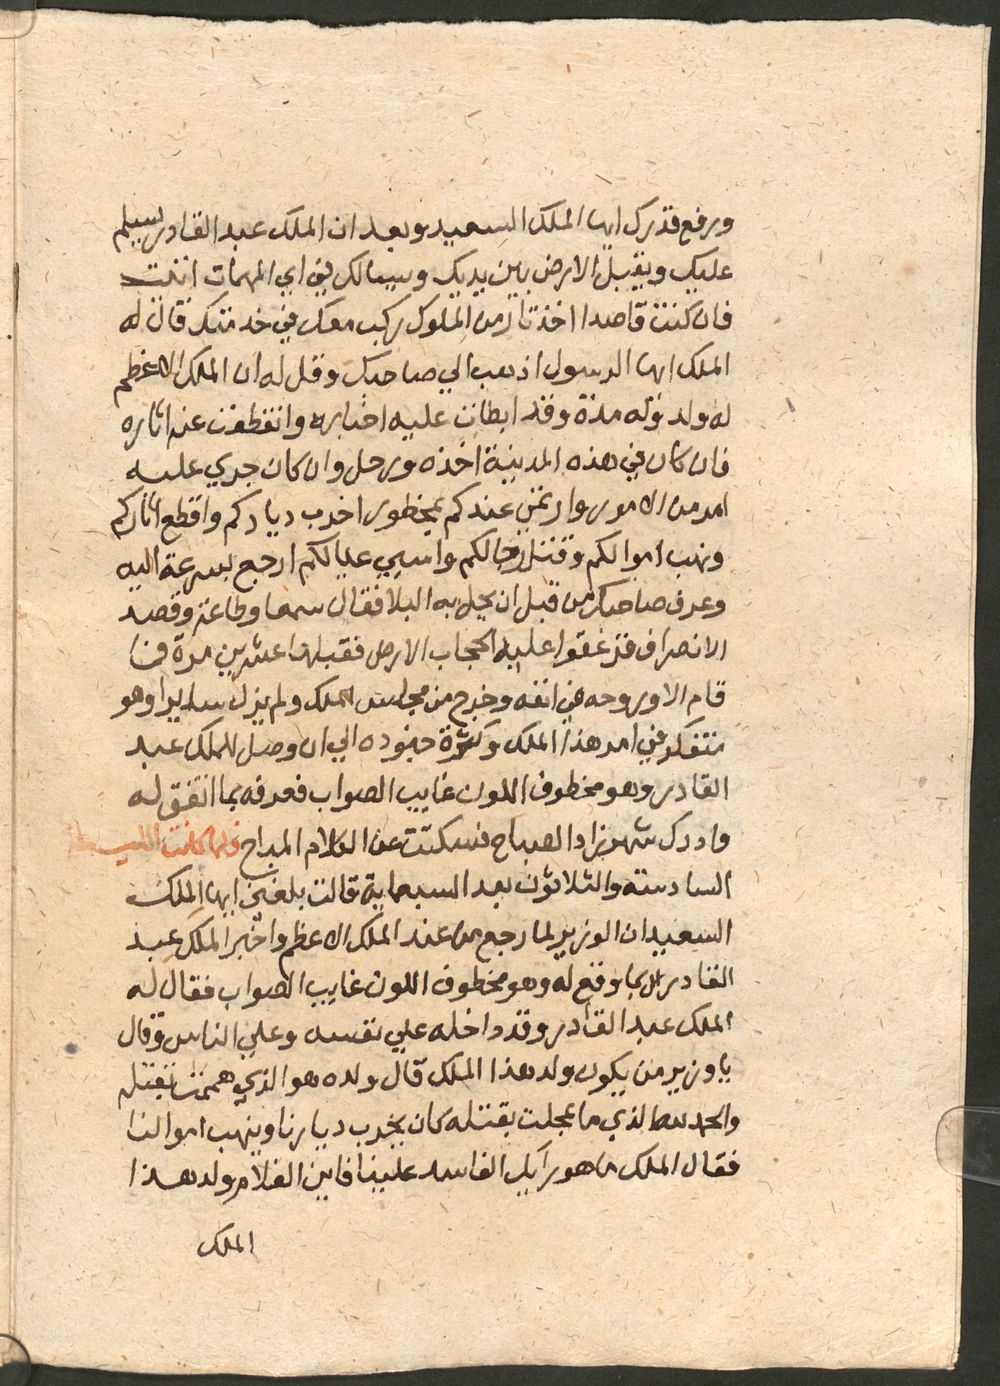 ورفع قدرك ايها الملك السعيد وبعد ان الملك عبد القادر يسلم
عليك ويقبل الارض بين يديك ويسالك في اي المهمات اتيت
فان كنت قاصدا اخذ ثار من الملوك ركب معك في خدمتك فقال له
الملك ايها الرسول اذهب الي صاحبك وقل له ان الملك الاعظم
له ولد وله مدة وقد ابطات عليه اخباره وانقطعت عنه اثاره
فان كان في هذه المدينة اخذه ورحل وان كان جري عليه
امر من الامور وارتمي عندكم بمخطور اخرب دياركم واقطع اثاركم
ونهب اموالكم وقتل رجالكم واسبي عيالكم ارجع بسرعة اليه
وعرف صاحبك من قبل ان يحل به البلا فقال سمعا وطاعة وقصد
الانصراف فزعقوا عليه الحجاب الارض فقبلها عشرين مرة فما
قام الا وروحه في انفه وخرج من مجلس الملك ولم يزل سايرا وهو
متفكر في امر هذا الملك وكثرة جنوده الي ان وصل للملك عبد
القادر وهو مخطوف اللون غايب الصواب فعرفه بما اتفق له
وادرك شهرزاد الصباح فسكتت عن الكلام المباح فلما كانت الليلة
السادسة والثلاثون بعد السبعماية قالت بلغني ايها الملك
السعيد ان الوزير لما رجع من عند الملك الاعظم واخبر الملك عبد
القادر بما وقع له وهو مخطوف اللون غايب الصواب فقال له
الملك عبد القادر وقد داخله علي نفسه وعلي الناس وقال
يا وزير من يكون ولد هذا الملك قال ولده هو الذي هممت بقتله
والحمد لله الذي ما عجلت بقتله كان يخرب ديارنا وينهب اموالنا
فقال الملك ما هو رايك الفاسد علينا فاين الغلام ولد هذا
الملك